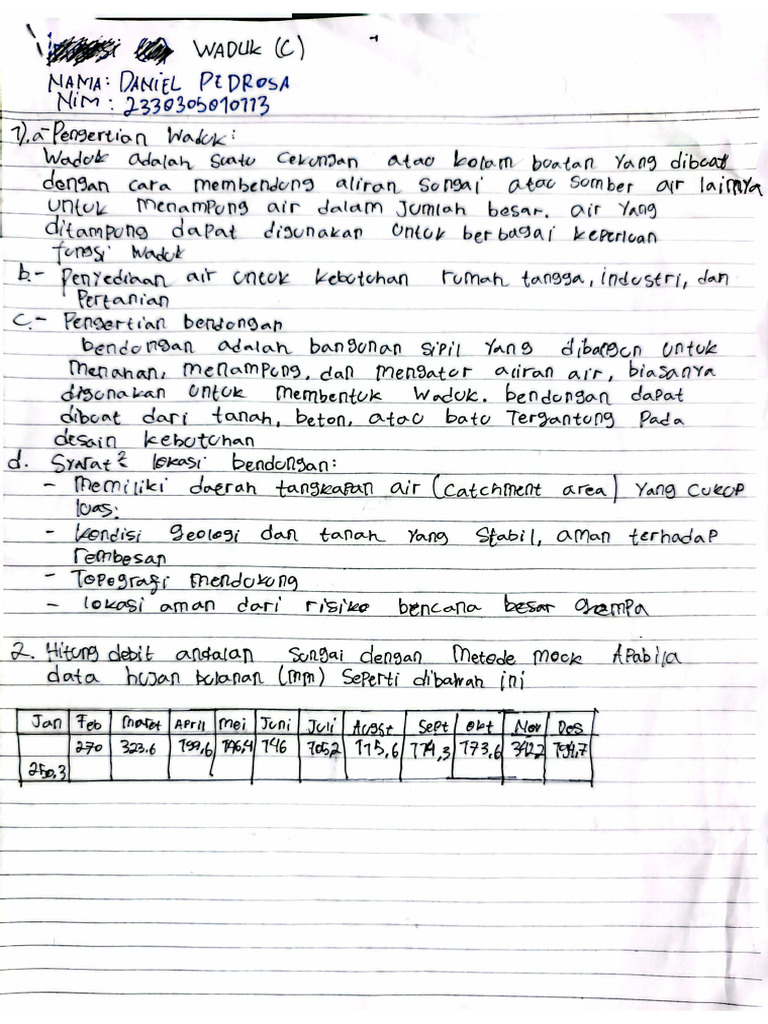 WADUK (C)
NAMA: DANIEL PEDROSA
NIM : 2330305010113
1). a- Pengertian Waduk:
Waduk adalah suatu cekungan atau kolam buatan yang dibuat
dengan cara membendung aliran sungai atau sumber air lainnya
untuk menampung air dalam jumlah besar. air yang
ditampung dapat digunakan untuk berbagai keperluan
fungsi waduk
b.- Penyediaan air untuk kebutuhan rumah tangga, industri, dan
Pertanian
c.- Pengertian bendungan
bendungan adalah bangunan sipil yang dibangun untuk
Menahan, menampung, dan mengatur aliran air, biasanya
digunakan untuk membentuk waduk. bendungan dapat
dibuat dari tanah, beton, atau batu Tergantung pada
desain kebutuhan
d. Syarat² lokasi bendungan:
- Memiliki daerah tangkapan air (catchment area) yang cukup
luas.
- kondisi geologi dan tanah yang stabil, aman terhadap
rembesan
- Topografi mendukung
- lokasi aman dari risiko bencana besar Gempa
2. Hitung debit andalan sungai dengan Metode mock Apabila
data hujan bulanan (mm) seperti dibawah ini
Jan Feb Maret April Mei Juni Juli Agust Sept Okt Nov Des
270 323.6 199,6 146 115,6 114,3 173,6 194,7
250,3